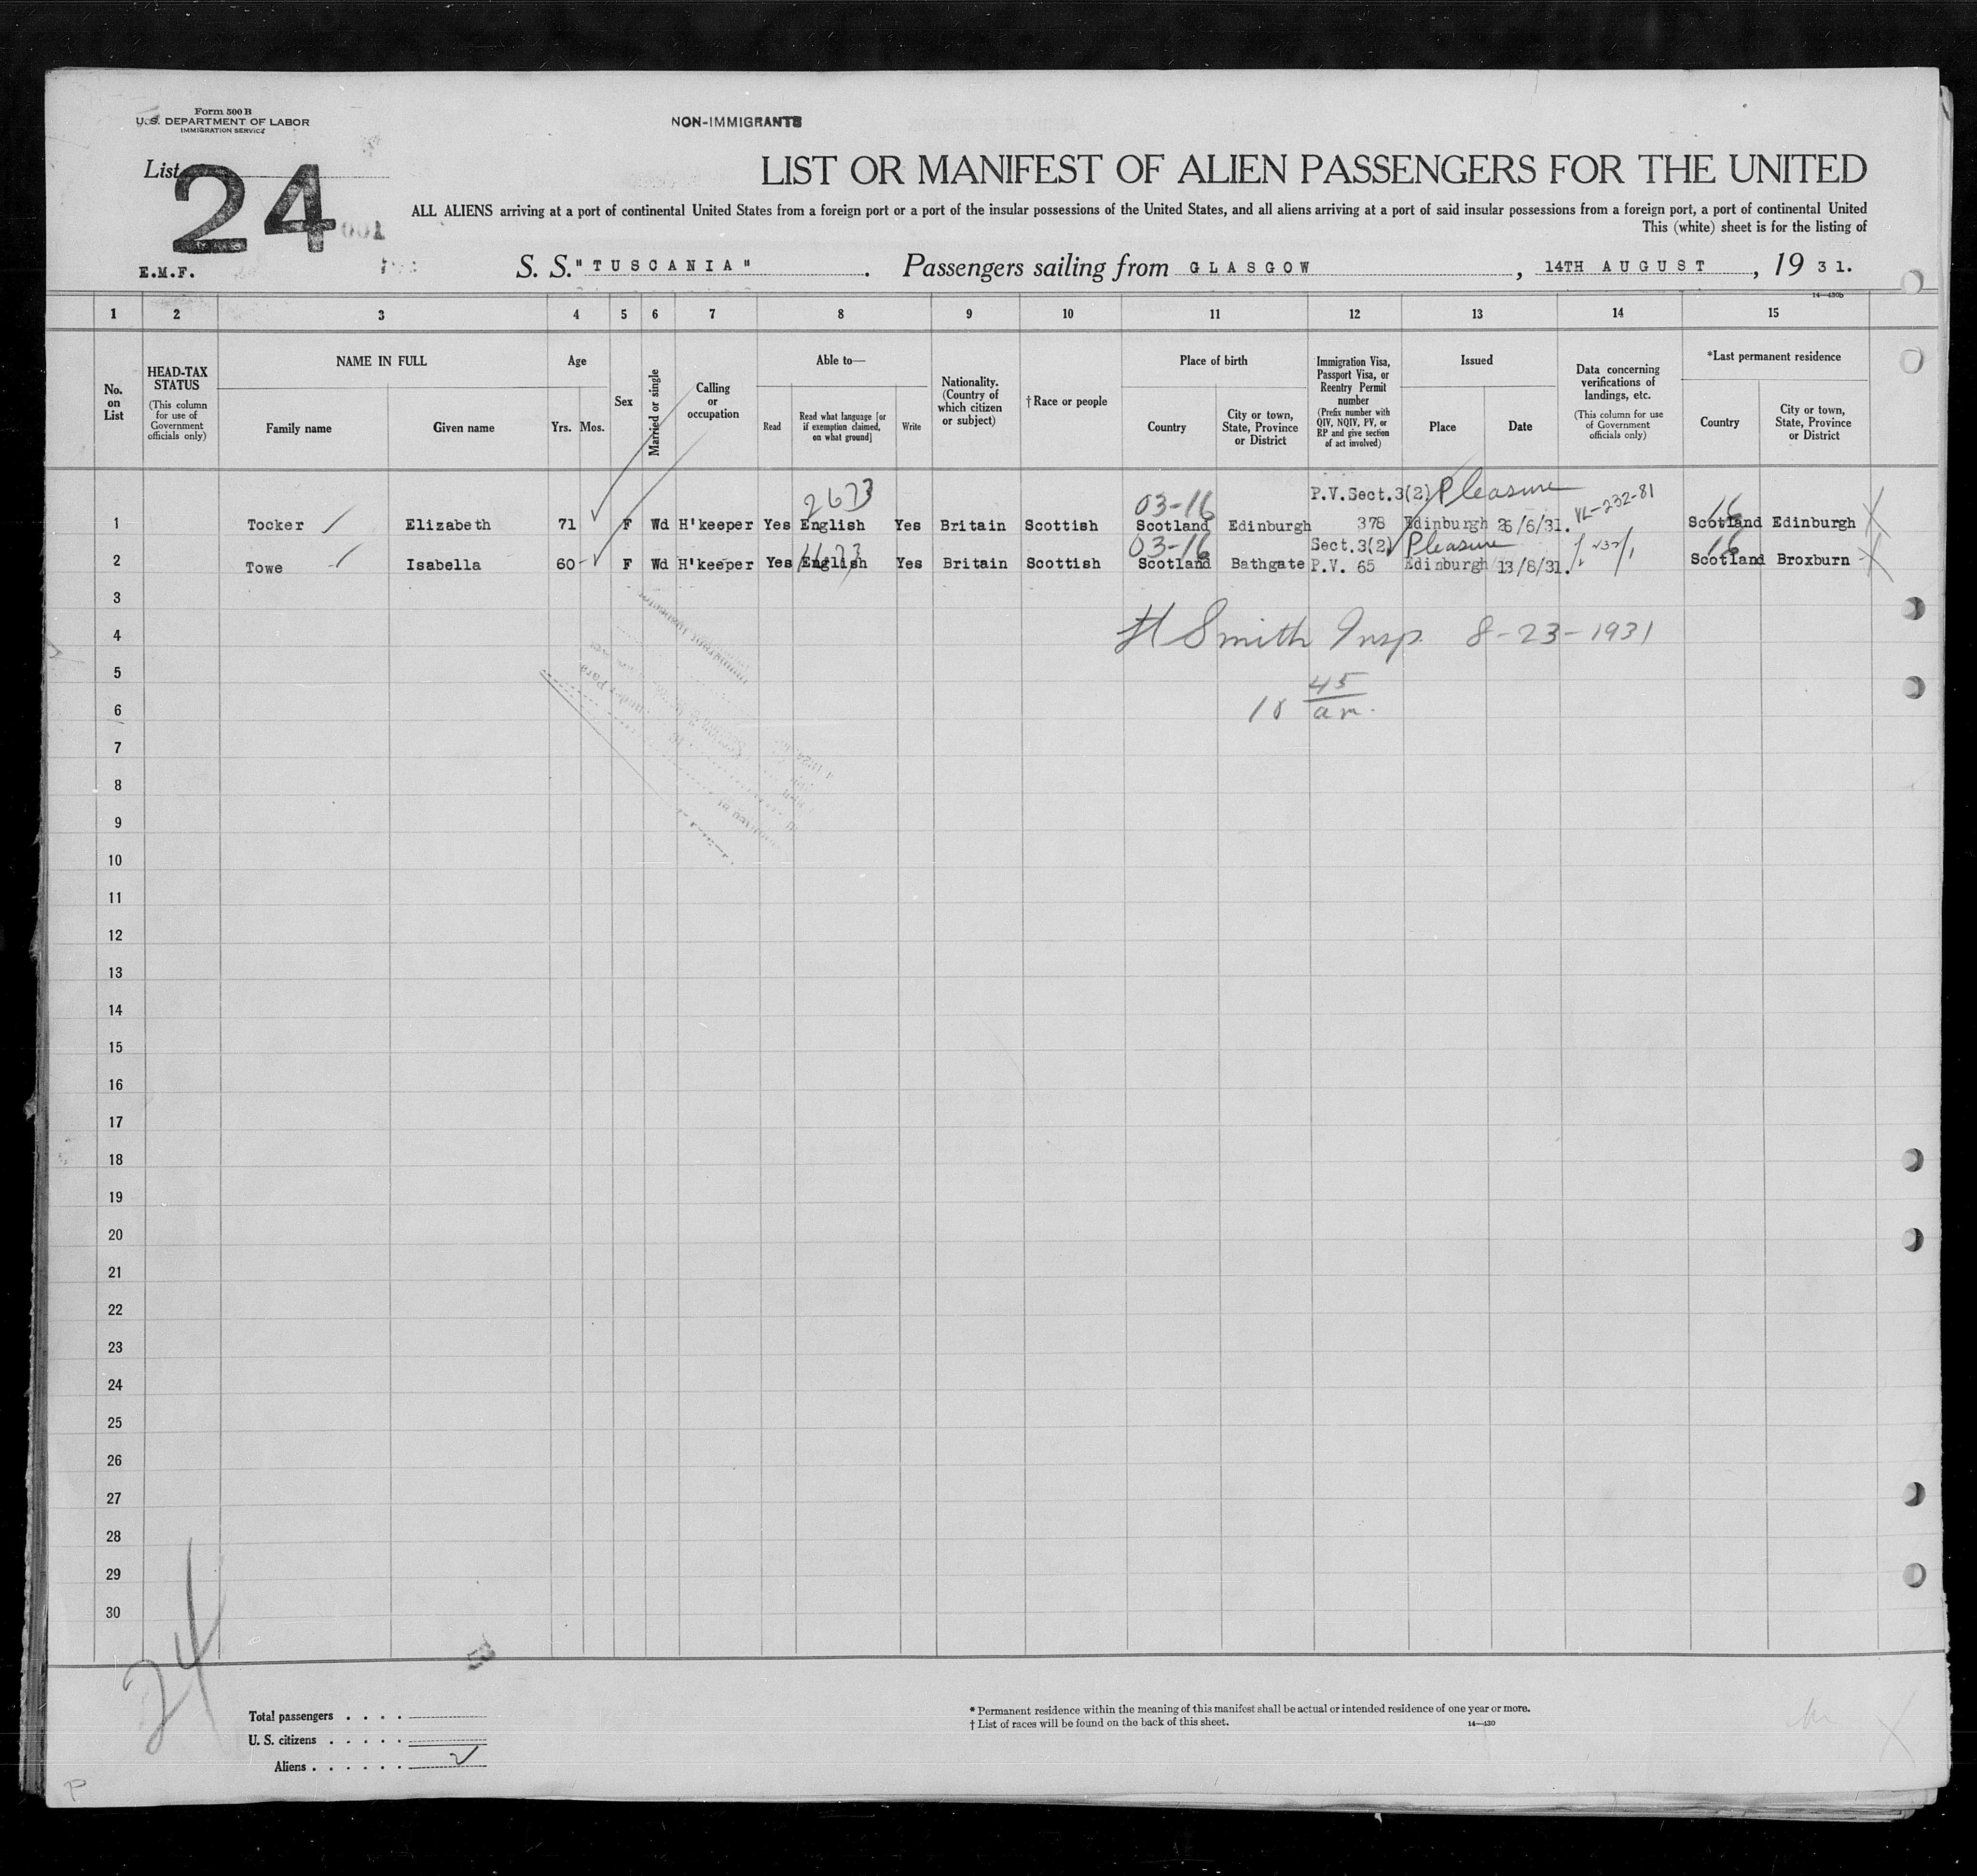 Form 500 B
U.S. DEPARTMENT OF LABOR
IMMIGRATION SERVICE
NON-IMMIGRANTS
List 24
001
LIST OR MANIFEST OF ALIEN PASSENGERS FOR THE UNITED
ALL ALIENS arriving at a port of continental United States from a foreign port or a port of the insular possessions of the United States, and all aliens arriving at a port of said insular possessions from a foreign port, a port of continental United
This (white) sheet is for the listing of
E.M.F.
S. S. "TUSCANIA". Passengers sailing from GLASGOW, 14TH AUGUST, 1931.
14—430b
1 2 3 4 5 6 7 8 9 10 11 12 13 14 15
No. on List
HEAD-TAX STATUS (This column for use of Government officials only)
NAME IN FULL
Family name
Given name
Age
Yrs. Mos.
Sex
Married or single
Calling or occupation
Able to—
Read
Read what language [or if exemption claimed, on what ground]
Write
Nationality. (Country of which citizen or subject)
†Race or people
Place of birth
Country
City or town, State, Province or District
Immigration Visa, Passport Visa, or Reentry Permit number (Prefix number with QIV, NQIV, PV, or RP and give section of act involved)
Issued
Place
Date
Data concerning verifications of landings, etc. (This column for use of Government officials only)
*Last permanent residence
Country
City or town, State, Province or District
2673 03-16 P.V.Sect.3(2) Pleasure VL-232-81 16
1 Tocker Elizabeth 71 F Wd H'keeper Yes English Yes Britain Scottish Scotland Edinburgh 378 Edinburgh 26/6/31. Scotland Edinburgh
03-16 Sect.3(2) Pleasure 16
2 Towe Isabella 60 F Wd H'keeper Yes English Yes Britain Scottish Scotland Bathgate P.V. 65 Edinburgh 13/8/31. Scotland Broxburn
3
4 Smith Insp. 8-23-1931
5
6 10 45 am.
7
8
9
10
11
12
13
14
15
16
17
18
19
20
21
22
23
24
25
26
27
28
29
30
24
Total passengers . . . .
U. S. citizens . . . . .
Aliens . . . . . . 2
* Permanent residence within the meaning of this manifest shall be actual or intended residence of one year or more.
† List of races will be found on the back of this sheet.
14—430
P